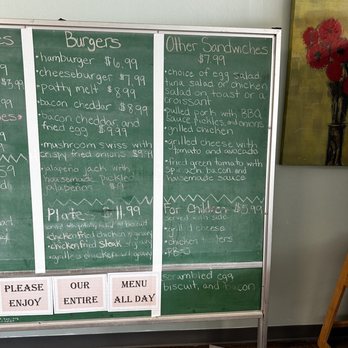 Burgers
• hamburger $6.99
• cheeseburger $7.99
• patty melt $8.99
• bacon cheddar $8.99
• bacon cheddar and
fried egg $9.99
• mushroom swiss with
crispy fried onions $9
• jalapeno jack with
housemade pickled
jalapeños $9
Plates $11.99
• chicken fried chicken & gravy
• chicken fried steak & gravy
• grilled chicken w/ gravy
Other Sandwiches
$7.99
• choice of egg salad,
tuna salad or chicken
salad on toast or a
croissant
• pulled pork with BBQ
sauce, pickles, and onions
• grilled chicken
• grilled cheese with
tomato and avocado
• fried green tomato with
spinach, bacon and
housemade sauce
For Children $5.99
served with side
• grilled cheese
• chicken tenders
• PB&J
scrambled egg
biscuit, and bacon
PLEASE
ENJOY
OUR
ENTIRE
MENU
ALL DAY